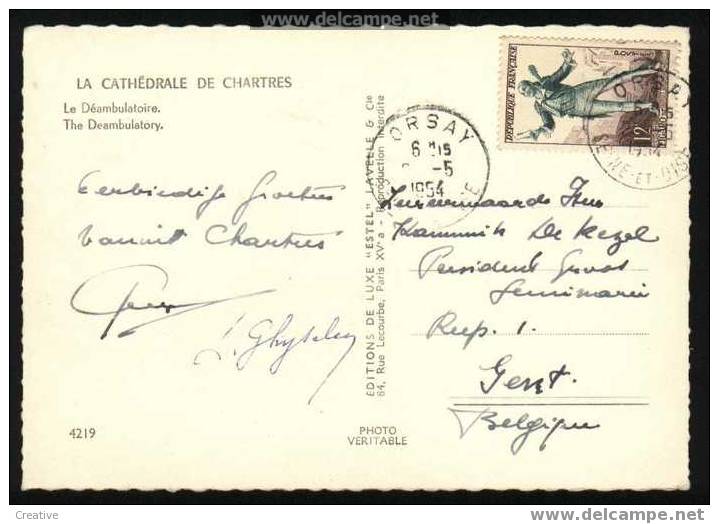 www.delcampe.net
LA CATHÉDRALE DE CHARTRES
Le Déambulatoire.
The Deambulatory.
Eerbiedige Groeten
vanuit Chartres
L. Ghyselen
4219
PHOTO
VERITABLE
EDITIONS DE LUXE "ESTEL" LAVELLE & Cie
84, Rue Lecourbe, Paris XVe - Reproduction interdite
REPUBLIQUE FRANÇAISE
12F
FIGARO
ORSAY
6 H15
-5
1954
ORSAY
1954
SEINE-ET-OISE
Zeereerwaarde Heer
Kanunnik De Kezel
President Groot
Seminarie
Reep. 1.
Gent.
Belgique
Creative
www.delcampe.net